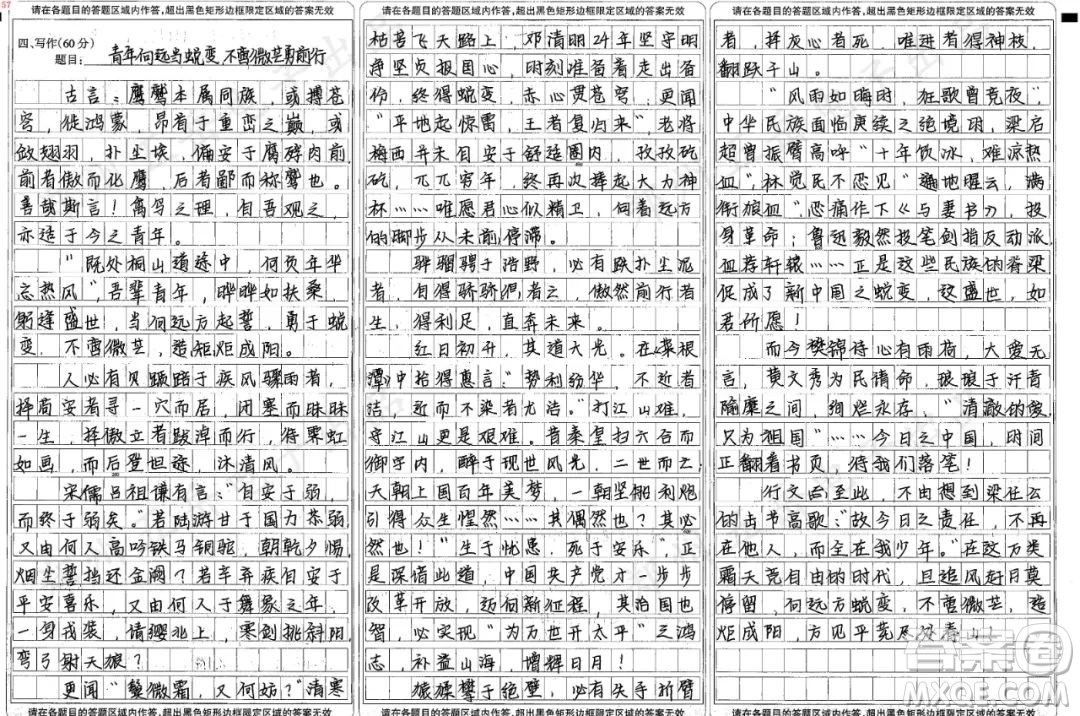 57
请在各题目的答题区域内作答,超出黑色矩形边框限定区域的答案无效
四、写作(60分)
题目: 青年向远当蜕变 不啻微芒勇前行
古言:鹰鹫本属同族,或搏苍
穹,徙鸿蒙,昂首于重峦之巅,或
敛翅羽,扑尘埃,偏安于腐碎肉前,
前者傲而化鹰,后者鄙而称鹫也。
善哉斯言!禽鸟之理,自吾观之,
亦适于今之青年。
“既处桐山道途中,何负年华
忘热风”,吾辈青年,晔晔如扶桑,
躬逢盛世,当何远方起誓,勇于蜕
变,不啻微芒,造炬成阳。
人必有见踬踣于疾风骤雨者,
择苟安者寻一穴而居,闭塞而昧昧
一生,择傲立者跋淖而行,待霁虹
如画,而后登坦途,沐清风。
宋儒吕祖谦有言:“自安于弱,
而终于弱矣。”若陆游甘于国力恭弱,
又由何人高吟铁马铜驼,朝乾夕惕,
烟尘誓挡还金阙?若辛弃疾自安于
平安喜乐,又由何人于舞象之年,
一身戎装,请缨北上,寒剑挑斜阳,
弯弓射天狼?
更闻“蟹微霜,又何妨?”清寒
请在各题目的答题区域内作答,超出黑色矩形边框限定区域的答案无效
请在各题目的答题区域内作答,超出黑色矩形边框限定区域的答案无效
枯苦飞天路上,邓清明24年坚守明
净坚贞报国心,时刻准备着走出备
份,终得蜕变,赤心贯苍穹,更闻
“平地起惊雷,王者复归来”,老将
梅西并未自安于舒适圈内,孜孜矻
矻,兀兀穷年,终再次捧起大力神
杯……唯愿君心似精卫,向着远方
的脚步从未前停滞。
骅骝骋于浩野,必有跌扑尘泥
者,自得骄骄得者云,傲然前行者
生,得利足,直奔未来。
红日初升,其道大光。在《菜根
谭》中拾得惠言:“势利纷华,不近者
洁,近而不染者尤洁。”打江山难,
守江山更是艰难。昔秦皇扫六合而
御宇内,醉于现世风光,二世而亡;
天朝上国百年美梦,一朝坚船利炮
引得众生惶然……其偶然也?其必
然也!“生于忧患,死于安乐”,正
是深谙此道,中国共产党才一步步
改革开放,迈向新征程,其治国为
智,必实现“为万世开太平”之鸿
志,补益山海,增辉日月!
猿猱攀于绝壁,必有失手折臂
请在各题目的答题区域内作答,超出黑色矩形边框限定区域的答案无效
请在各题目的答题区域内作答,超出黑色矩形边框限定区域的答案无效
者,择灰心者死,唯进者得神枝,
翻跃千山。
“风雨如晦时,狂歌曾竞夜”,
中华民族面临赓续之绝境时,梁启
超曾振臂高呼“十年饮冰,难凉热
血”,林觉民不忍见“遍地腥云,满
街狼血”,悲痛作下《与妻书》,投
身革命;鲁迅毅然投笔剑指反动派,
血荐轩辕……正是这些民族的脊梁
促成了新中国之蜕变,这盛世,如
君所愿!
而今樊锦诗心有雨荷,大爱无
言,黄文秀为民请命,玻玻于汗青
隃麋之间,绚烂永存,“清澈的爱,
只为祖国”……今日之中国,时间
正翻着书页,待我们落笔!
行文至此,不由想到梁任公
的击节高歌:“故今日之责任,不再
在他人,而全在我少年。”在这万类
霜天竞自由的时代,且追风赶日莫
停留,何远方蜕变,不啻微芒,造
炬成阳,方见平芜尽处春山!
请在各题目的答题区域内作答,超出黑色矩形边框限定区域的答案无效
答案圈
MXQE.COM